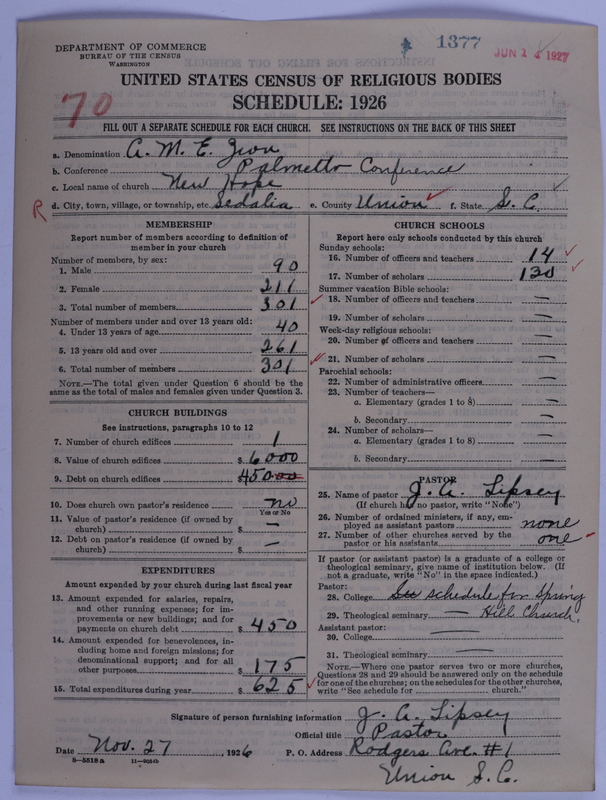 DEPARTMENT OF COMMERCE
BUREAU OF THE CENSUS
WASHINGTON
1377
JUN 14 1927
UNITED STATES CENSUS OF RELIGIOUS BODIES
SCHEDULE: 1926
70
FILL OUT A SEPARATE SCHEDULE FOR EACH CHURCH. SEE INSTRUCTIONS ON THE BACK OF THIS SHEET
a. Denomination A. M. E. Zion
b. Conference Palmetto Conference
c. Local name of church New Hope
R d. City, town, village, or township, etc. Sedalia e. County Union f. State S. C.
MEMBERSHIP
Report number of members according to definition of member in your church
Number of members, by sex:
1. Male 90
2. Female 211
3. Total number of members 301
Number of members under and over 13 years old:
4. Under 13 years of age 40
5. 13 years old and over 261
6. Total number of members 301
NOTE.—The total given under Question 6 should be the
same as the total of males and females given under Question 3.
CHURCH BUILDINGS
See instructions, paragraphs 10 to 12
7. Number of church edifices 1
8. Value of church edifices $ 6000
9. Debt on church edifices $ 45000
10. Does church own pastor's residence no
Yes or No
11. Value of pastor's residence (if owned by
church) $ —
12. Debt on pastor's residence (if owned by
church) $ —
EXPENDITURES
Amount expended by your church during last fiscal year
13. Amount expended for salaries, repairs,
and other running expenses; for im-
provements or new buildings; and for
payments on church debt $ 450
14. Amount expended for benevolences, in-
cluding home and foreign missions; for
denominational support; and for all
other purposes $ 175
15. Total expenditures during year $ 625
CHURCH SCHOOLS
Report here only schools conducted by this church
Sunday schools:
16. Number of officers and teachers 14
17. Number of scholars 130
Summer vacation Bible schools:
18. Number of officers and teachers —
19. Number of scholars —
Week-day religious schools:
20. Number of officers and teachers —
21. Number of scholars —
Parochial schools:
22. Number of administrative officers —
23. Number of teachers—
a. Elementary (grades 1 to 8) —
b. Secondary —
24. Number of scholars—
a. Elementary (grades 1 to 8) —
b. Secondary —
PASTOR
25. Name of pastor J. A. Lipsey
(If church has no pastor, write "None")
26. Number of ordained ministers, if any, em-
ployed as assistant pastors none
27. Number of other churches served by the
pastor or his assistants one
If pastor (or assistant pastor) is a graduate of a college or
theological seminary, give name of institution below. (If
not a graduate, write "No" in the space indicated.)
Pastor:
28. College See schedule for Spring
29. Theological seminary — Hill Church.
Assistant pastor:
30. College —
31. Theological seminary —
NOTE.—Where one pastor serves two or more churches,
Questions 28 and 29 should be answered only on the schedule
for one of the churches; on the schedules for the other churches,
write "See schedule for church."
Signature of person furnishing information J. A. Lipsey
Official title Pastor
Date Nov. 27, 1926 P. O. Address Rodgers Ave. #1
Union S. C.
8—5518a 11—9284b